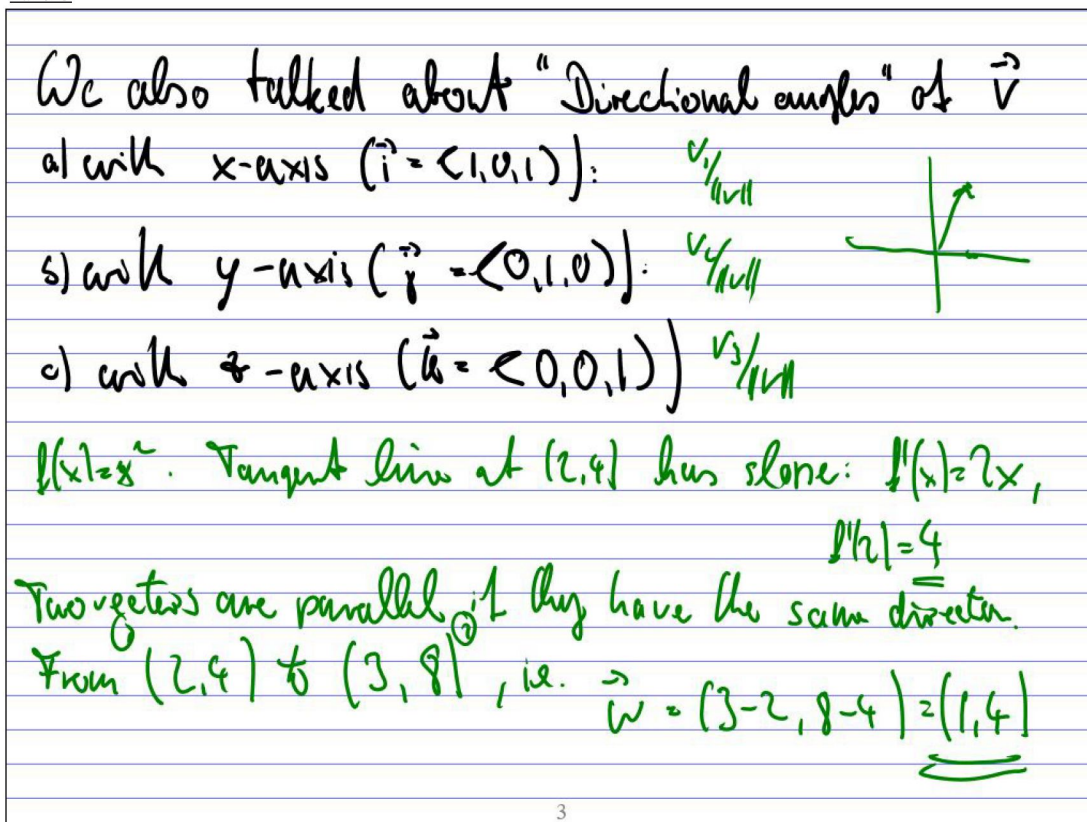 We also talked about "Directional angles" of v⃗
a) with x-axis (i⃗ = <1,0,1)): v₁/||v||
b) with y-axis (j⃗ = <0,1,0)): v₂/||v||
c) with z-axis (k⃗ = <0,0,1)) v₃/||v||
f(x)=x². Tangent line at (2,4) has slope: f'(x)=2x,
f'(2)=4
Two vectors are parallel if they have the same direction.
From (2,4) to (3,8), i.e. w⃗ = (3-2, 8-4) = (1,4)
3